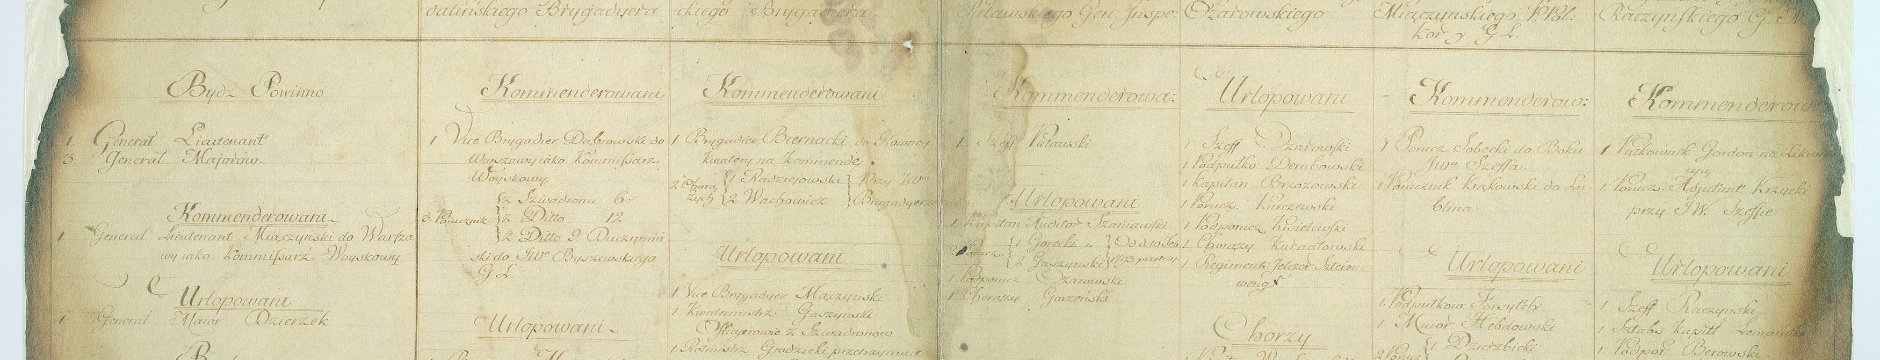 dalińskiego Brygadyera
ckiego Brygadiera
Puławskiego Gen. Inspe:
Ożarowskiego
Miączynskiego
Kor y G L.
Raczynskiego G
Bydź Powinno
1 Generał Lieutenant
3 Generał Majorow
Kommenderowani
1 Generał Lieutenant Miączynski do Warsza
wy iako Kommissarz Woyskowy
Urlopowani
1 Generał Maior Dzierżek
Kommenderowani
1 Vice Brygadier Dąbrowski do
Warszawy iako Kommissarz
Woyskowy
3 Porucznik
z Szwadronu 6
z Ditto 12
z Ditto 9
ski do JWo Byszewskiego
G L.
Urlopowani
Kommenderowani
1 Brygadier Biernacki do Głowney
Kwatery na Kommendę
2 Chorą
żych
1 Radziejowski
2 Wachowicz
Przy JW
Brygadyerze
Urlopowani
1 Vice Brygadyer Mączynski
1 Kwatermistrz Gaszynski
Officyerowie z Szwadronow
1 Rotmistrz Gradzicki przetrzymuie
Kommenderowa:
1 Szeff Puławski
Urlopowani
1 Kapitan Auditor Szaniawski
1 Gorecki
Gaszynski
1 Podporucz Ożarowski
1 Chorązy Gorzeński
Urlopowani
1 Szeff Ożarowski
1 Podpułko Dembowski
1 Kapitan Brzozowski
1 Porucz. Karczewski
1 Podporucz Kisielewski
1 Chorązy
1 Regiments Felczer
Chorzy
Kommenderow:
1 Porucz Sobecki do Boku
JWo Szeffa
1 Porucznik Krakowski do Lu
blina
Urlopowani
1 Podpułkow Forsyth
1 Maior Hebdowski
1 Dzierzbicki
Kommenderow
1 Pułkownik Gordon na
1 Porucz. Adjutant Kęzycki
przy JW. Szeffie
Urlopowani
1 Szeff Raczynski
1 Sztabs Kapit
1 Podpor Borowski